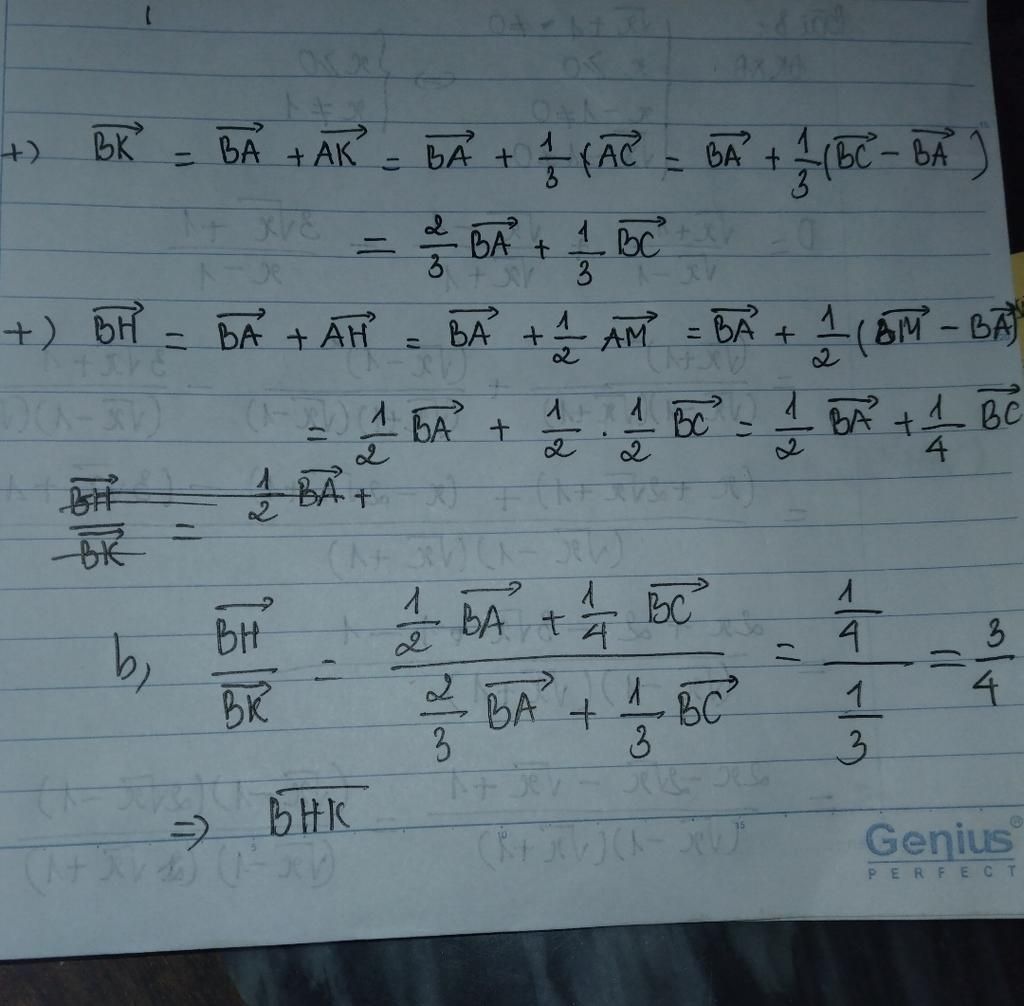 +) \overrightarrow{BK} = \overrightarrow{BA} + \overrightarrow{AK} = \overrightarrow{BA} + \frac{1}{3} (\overrightarrow{AC} = \overrightarrow{BA} + \frac{1}{3} (\overrightarrow{BC} - \overrightarrow{BA})
= \frac{2}{3} \overrightarrow{BA} + \frac{1}{3} \overrightarrow{BC}
+) \overrightarrow{BH} = \overrightarrow{BA} + \overrightarrow{AH} = \overrightarrow{BA} + \frac{1}{2} \overrightarrow{AM} = \overrightarrow{BA} + \frac{1}{2} (\overrightarrow{BM} - \overrightarrow{BA})
= \frac{1}{2} \overrightarrow{BA} + \frac{1}{2} . \frac{1}{2} \overrightarrow{BC} = \frac{1}{2} \overrightarrow{BA} + \frac{1}{4} \overrightarrow{BC}
\frac{\overrightarrow{BH}}{\overrightarrow{BK}} = \frac{1}{2} \overrightarrow{BA} +
b, \frac{\overrightarrow{BH}}{\overrightarrow{BK}} = \frac{\frac{1}{2} \overrightarrow{BA} + \frac{1}{4} \overrightarrow{BC}}{\frac{2}{3} \overrightarrow{BA} + \frac{1}{3} \overrightarrow{BC}} = \frac{\frac{1}{4}}{\frac{1}{3}} = \frac{3}{4}
=> \overline{BHK}
Genius
PERFECT